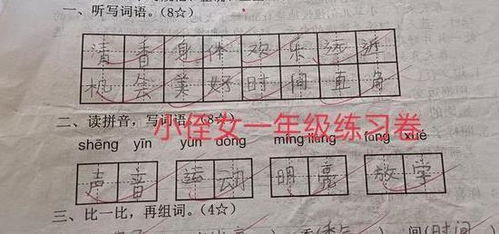 一、听写词语。(8☆)
清香身体欢乐远近
机会美好时间直角
二、读拼音,写词语。(8☆)
小侄女一年级练习卷
shēng yīn yùn dòng míng liàng fàng xué
声音 运动 明亮 放学
三、比一比,再组词。(4☆)
间(时间)